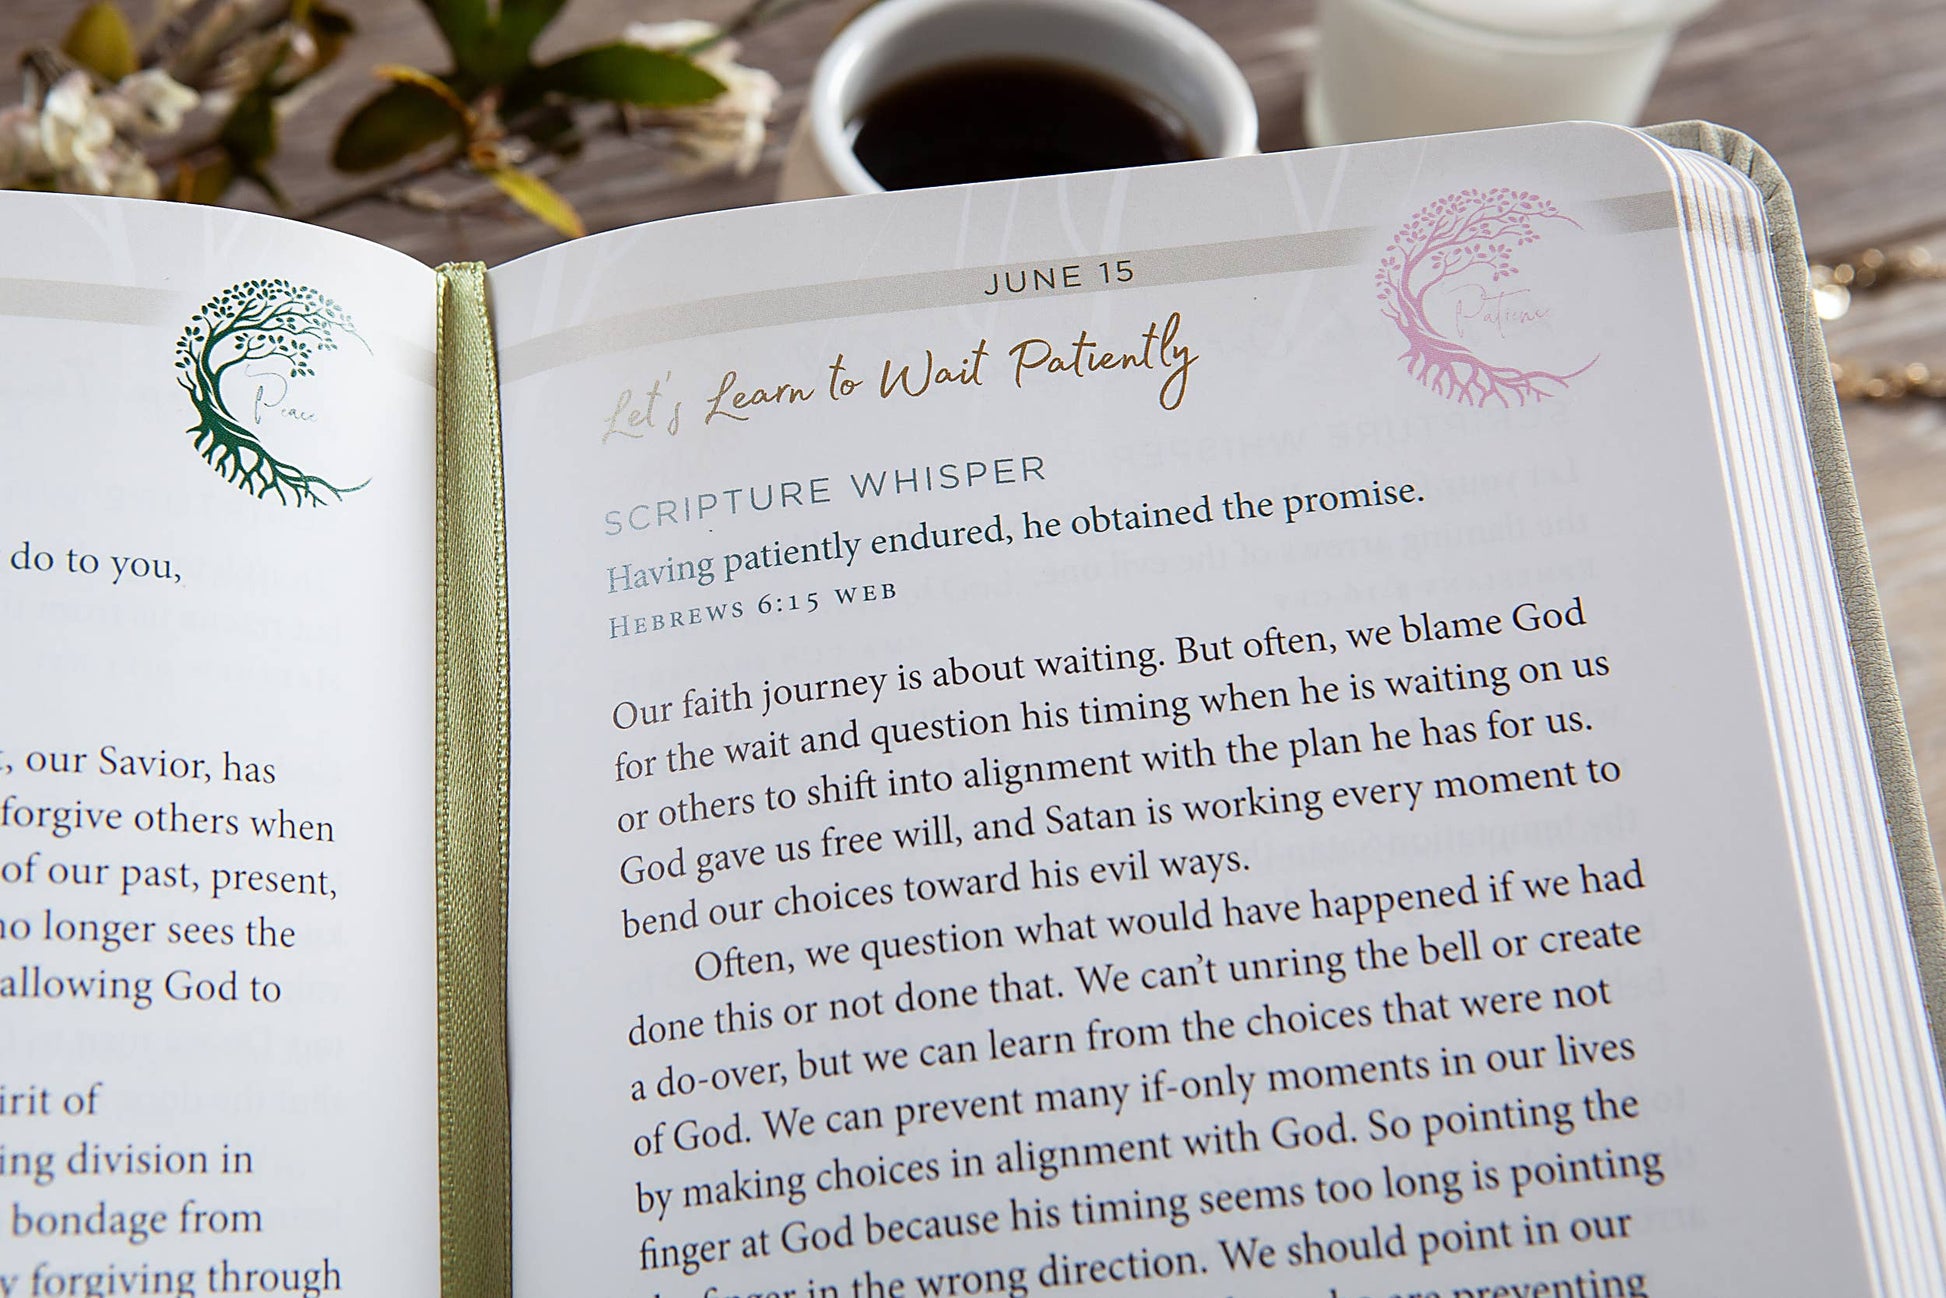 Peace
do to you,
, our Savior, has
forgive others when
of our past, present,
no longer sees the
allowing God to
irit of
ing division in
bondage from
y forgiving through
JUNE 15
Patience
Let's Learn to Wait Patiently
SCRIPTURE WHISPER
Having patiently endured, he obtained the promise.
HEBREWS 6:15 WEB
Our faith journey is about waiting. But often, we blame God
for the wait and question his timing when he is waiting on us
or others to shift into alignment with the plan he has for us.
God gave us free will, and Satan is working every moment to
bend our choices toward his evil ways.
Often, we question what would have happened if we had
done this or not done that. We can't unring the bell or create
a do-over, but we can learn from the choices that were not
of God. We can prevent many if-only moments in our lives
by making choices in alignment with God. So pointing the
finger at God because his timing seems too long is pointing
in the wrong direction. We should point in our
preventing